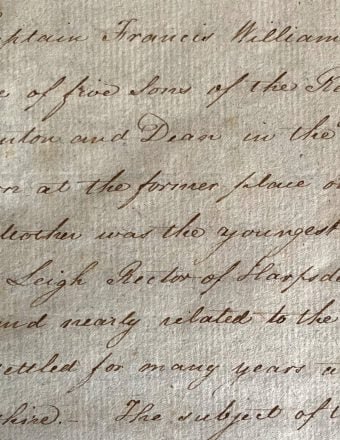 aptain Francis William
e of five Sons of the Re
enton and Dean in the
rn at the former place o
Mother was the youngest
Leigh Rector of Harpsde
and nearly related to the
settled for many years a
shire.— The subject of t